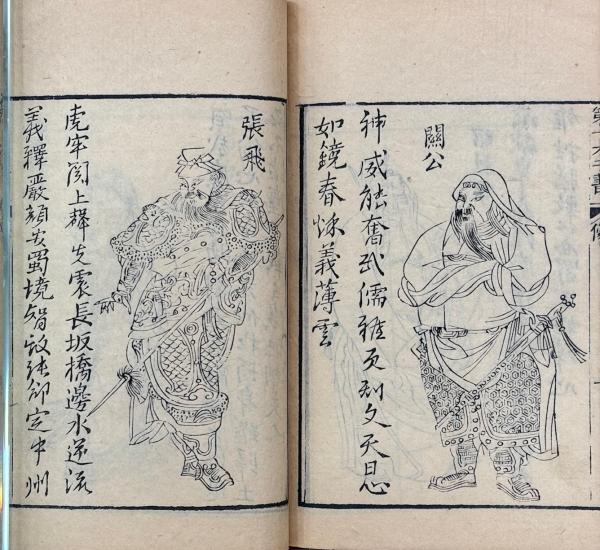 關公
神威能奮武儒雅更知文天日心
如鏡春秋義薄雲
張飛
虎牢関上聲先震長坂橋邊水逆流
義釋嚴顏安蜀境智欺張郃定中州